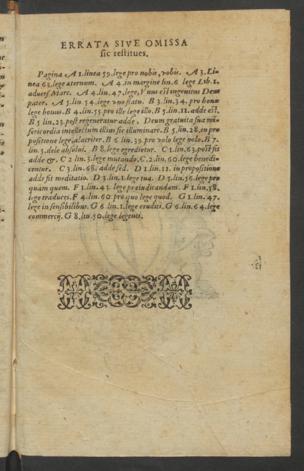 ERRATA SIVE OMISSA
sic restitues.
Pagina A 1. linea 59. lege pro nobis, vobis. A 3. Li-
nea 63. lege æternum. A 4. in margine lin. 6 lege Lib. 1.
adversˢ Marc. A 4. lin. 47. lege, Unus est ingenitus Deus
pater. A 5. lin. 54. lege uno flatu. B 3. lin. 34. pro bonum
lege bonus. B 4. lin. 55. pro ille lege illo. B 5. lin. 12. adde est.
B 5. lin. 23. post regeneratur adde. Deum gratuita sua mi-
sericordia intellectum illius sic illuminat. B 5. lin. 28. in pro
positione lege, alacriter. B 6. lin. 39. pro volo lege nolo. B 7.
lin. 5. dele absolui. B 8. lege egredietur. C 1. lin. 63. post sit
adde &. C 2. lin. 5. lege mutando. C 2. lin. 60. lege benedi-
centur. C 3. lin. 68. adde sed. D 1. lin. 12. in propositione
adde sit meditatio. D 3. lin. 1. lege tua. D 5. lin. 56. lege pro
quam quem. F 1. lin. 43. lege præiudicandam. F 1. lin. 58.
lege traduces. F 4. lin. 60. pro quo lege quod. G 1. lin. 47.
lege insensibilibus. G 6. lin. 1. lege eruditi. G 6. lin. 64. lege
commercij. G 8. lin. 50. lege legenti.